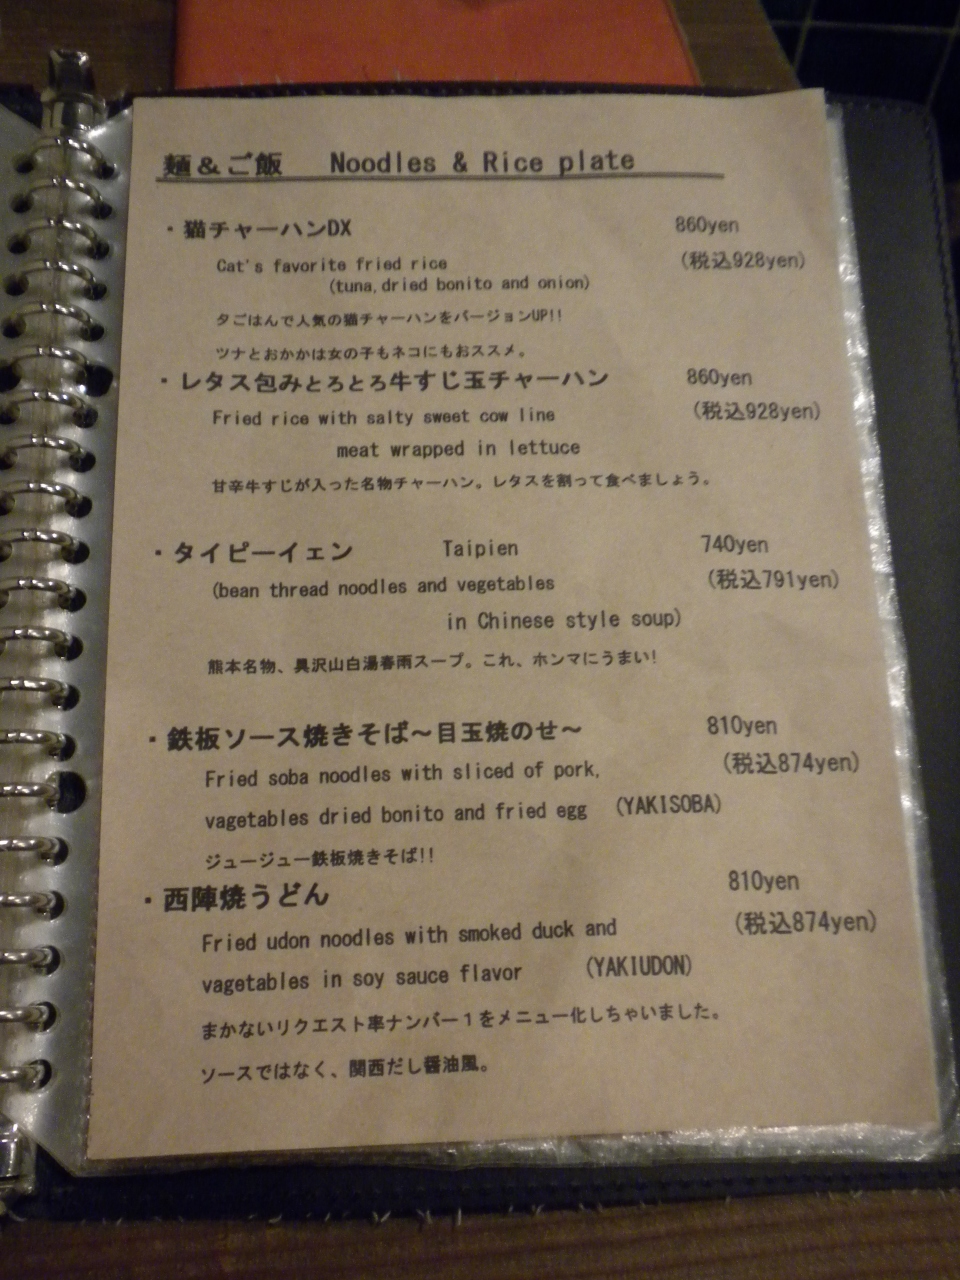 麺＆ご飯 Noodles & Rice plate
・猫チャーハンDX 860yen
Cat's favorite fried rice (税込928yen)
(tuna,dried bonito and onion)
夕ごはんで人気の猫チャーハンをバージョンUP!!
ツナとおかかは女の子もネコにもおススメ。
・レタス包みとろとろ牛すじ玉チャーハン 860yen
Fried rice with salty sweet cow line (税込928yen)
meat wrapped in lettuce
甘辛牛すじが入った名物チャーハン。レタスを割って食べましょう。
・タイピーイェン Taipien 740yen
(bean thread noodles and vegetables (税込791yen)
in Chinese style soup)
熊本名物、具沢山白湯春雨スープ。これ、ホンマにうまい!
・鉄板ソース焼きそば～目玉焼のせ～ 810yen
Fried soba noodles with sliced of pork, (税込874yen)
vagetables dried bonito and fried egg (YAKISOBA)
ジュージュー鉄板焼きそば!!
・西陣焼うどん 810yen
Fried udon noodles with smoked duck and (税込874yen)
vagetables in soy sauce flavor (YAKIUDON)
まかないリクエスト率ナンバー１をメニュー化しちゃいました。
ソースではなく、関西だし醤油風。